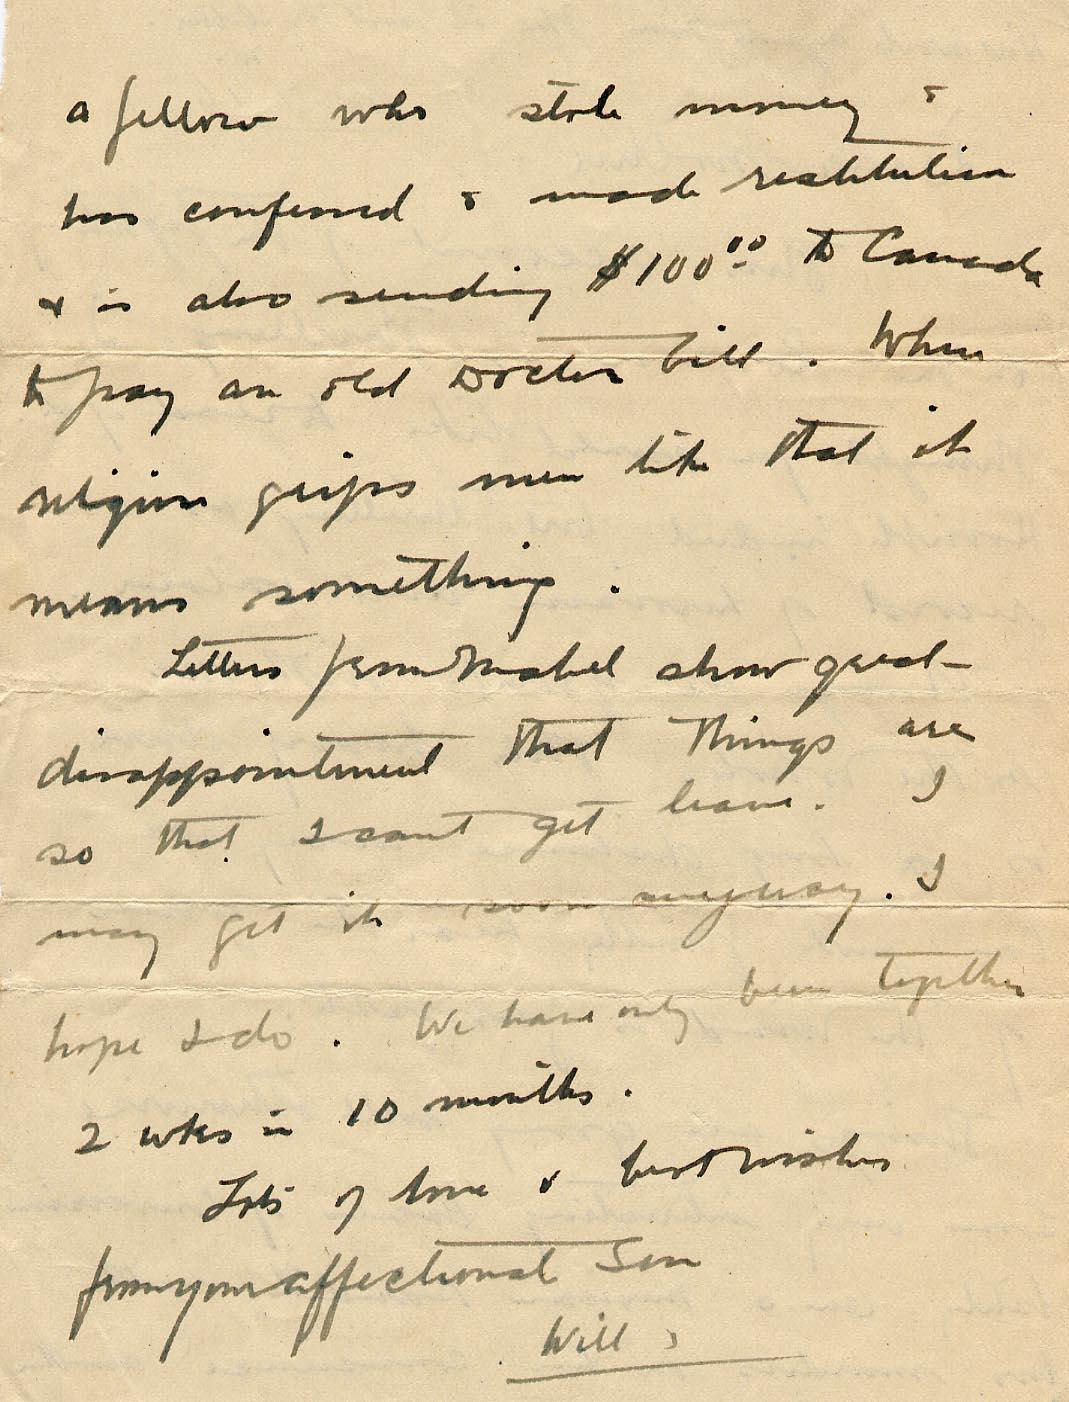 a fellow who stole money &
has confessed & made restitution
& is also sending $100.00 to Canada
to pay an old Doctor bill. When
religion grips men like that it
means something.
Letters from Mabel show great
disappointment that things are
so that I cant get leave. I
may get it soon anyway. I
hope I do. We have only been together
2 wks in 10 months.
Lots of love & best wishes
from your affectionate Son
Will